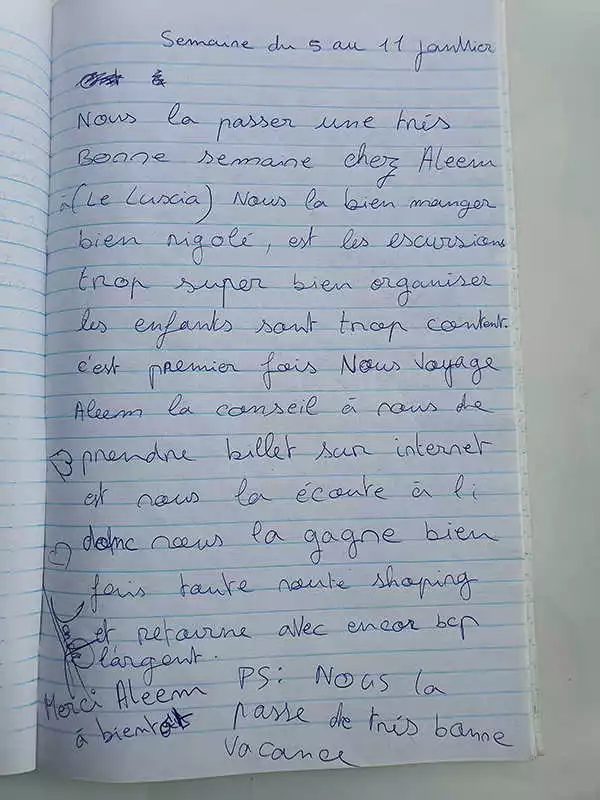 Semaine du 5 au 11 janvier
Nous la passer une très
Bonne semaine chez Aleem
à (Le Luxcia) Nous la bien manger
bien rigolé, est les escursions
trop super bien organiser
les enfants sont trop content.
c'est premier fois Nous voyage
Aleem la conseil à nous de
prendre billet sur internet
et nous la écoute à li
donc nous la gagne bien
fais toute noute shoping
et retourne avec encor bcp
l'argent.
Merci Aleem
à bientot
PS: Nous la
passe de très bonne
vacance